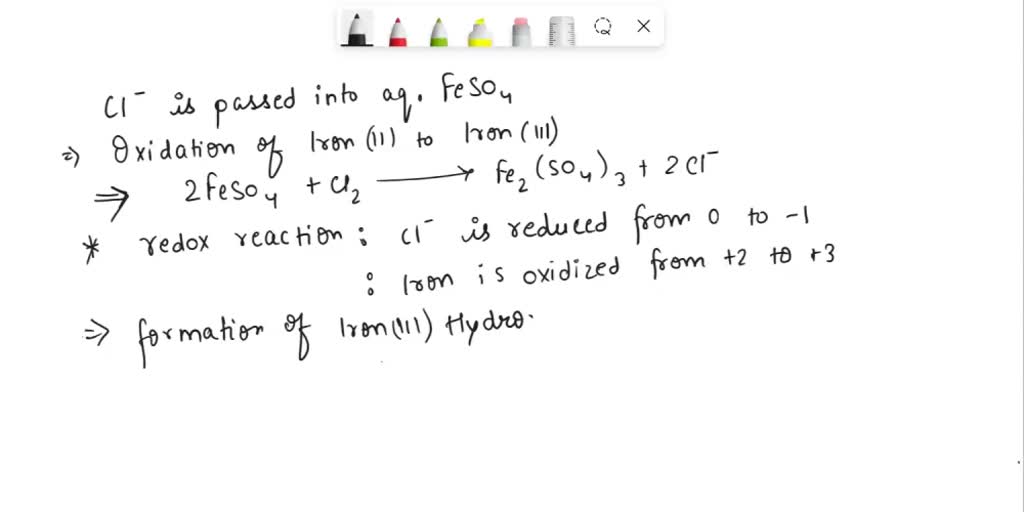 Cl⁻ is passed into aq. FeSO₄
⇒ Oxidation of Iron (II) to Iron (III)
⇒ 2FeSO₄ + Cl₂ ⟶ Fe₂(SO₄)₃ + 2Cl⁻
* redox reaction : Cl⁻ is reduced from 0 to -1
: Iron is oxidized from +2 to +3
⇒ formation of Iron(III) Hydro.